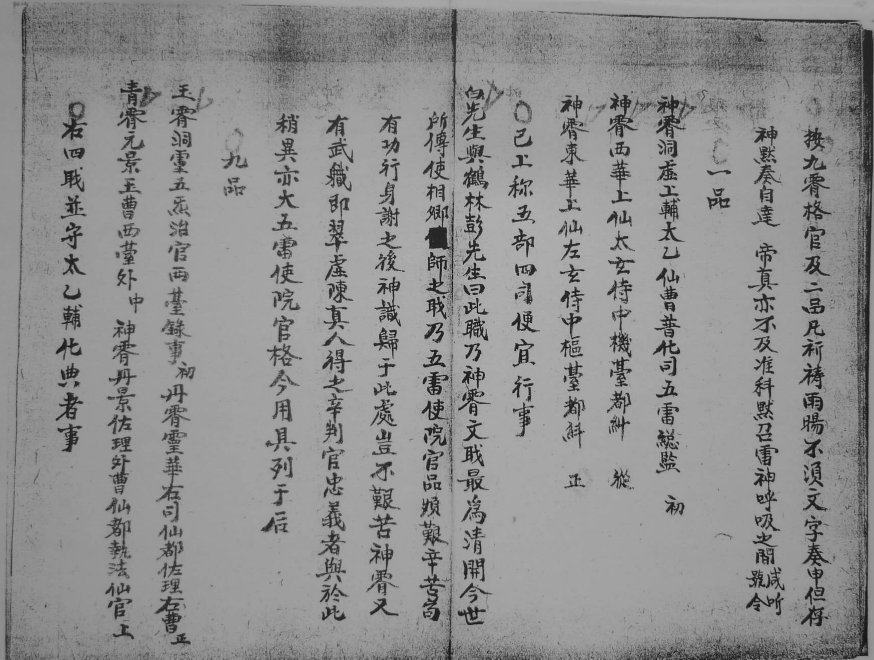 按九霄格官及二品凡祈祷雨暘不湏文字奏申但存
神黙奏自達 帝真亦不及准科黙召雷神呼吸之間咸听號令
一品
神霄洞虚上輔太乙仙曹普化司五雷総監 初
神霄西華上仙太玄侍中機䑓都糾 從
神霄東華上仙左玄侍中樞䑓都糾 正
已上称五部四司便宜行事
白先生與鶴林彭先生曰此職乃神霄文戝最爲清閒今世
所傳使相卿師之戝乃五雷使院官品頗艱辛苦啇
有功行身謝之後神識歸于此處豈不艱苦神霄又
有武軄即翠虚陳真人得之辛判官忠義者與於此
稍異亦大五雷使院官格今用具列于后
九品
玉霄洞靈五炁治官西䑓錄事初丹霄靈華右司仙都佐理右曹正
青霄元景玉曹西䑓外中神霄丹景佐理外曹仙都執法仙官上
右四戝並守太乙輔化典者事